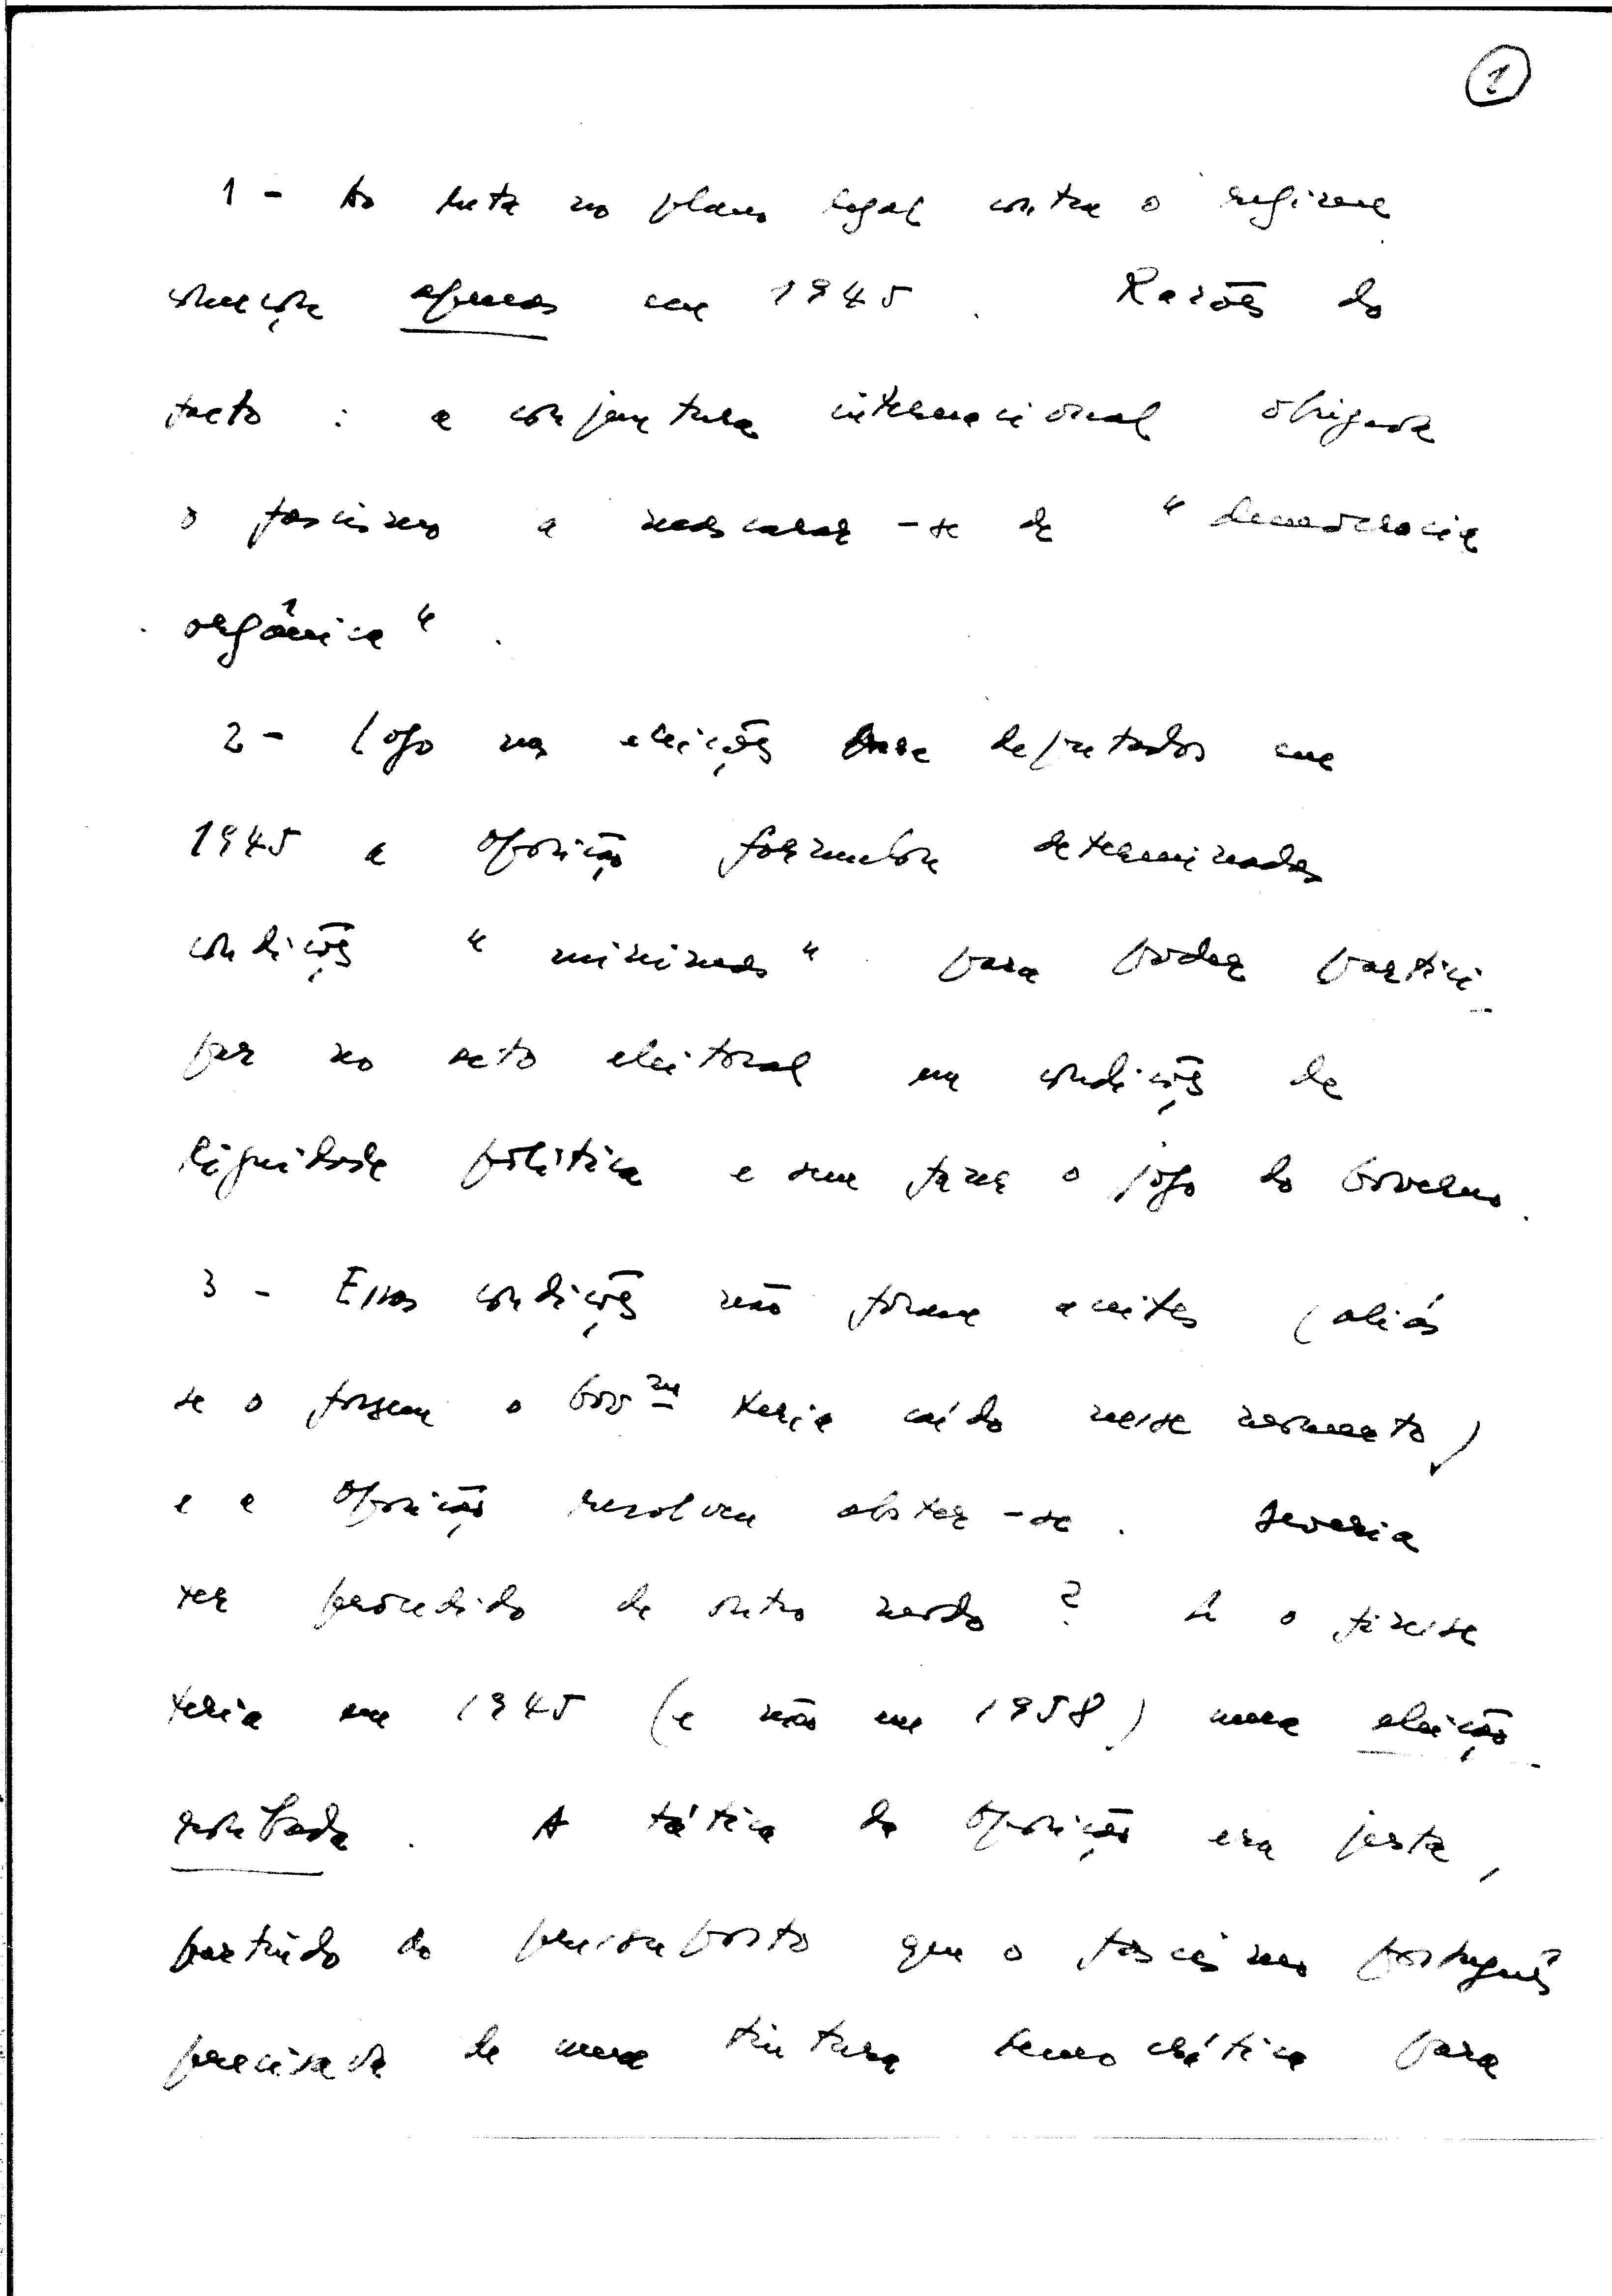 1
1 - A luta no plano legal contra o regime
começou apenas em 1945. Razões do
facto : a conjuntura internacional obrigava
o fascismo a mascarar-se de "democracia
orgânica".
2 - Logo nas eleições para deputados em
1945 a oposição formulou determinadas
condições "minimas" para poder partici-
par no acto eleitoral em condições de
dignidade política e sem fazer o jogo do Governo.
3 - Essas condições não foram aceites (aliás
se o fossem o Gov<sup>no</sup> teria caído nesse momento)
e a oposição resolveu abster-se. Deveria
ter procedido de outro modo? Se o fizesse
teria em 1945 (e não em 1958) uma eleição
roubada. A tática da oposição era justa,
partindo do pressuposto que o fascismo português
precisava de uma tintura democrática para